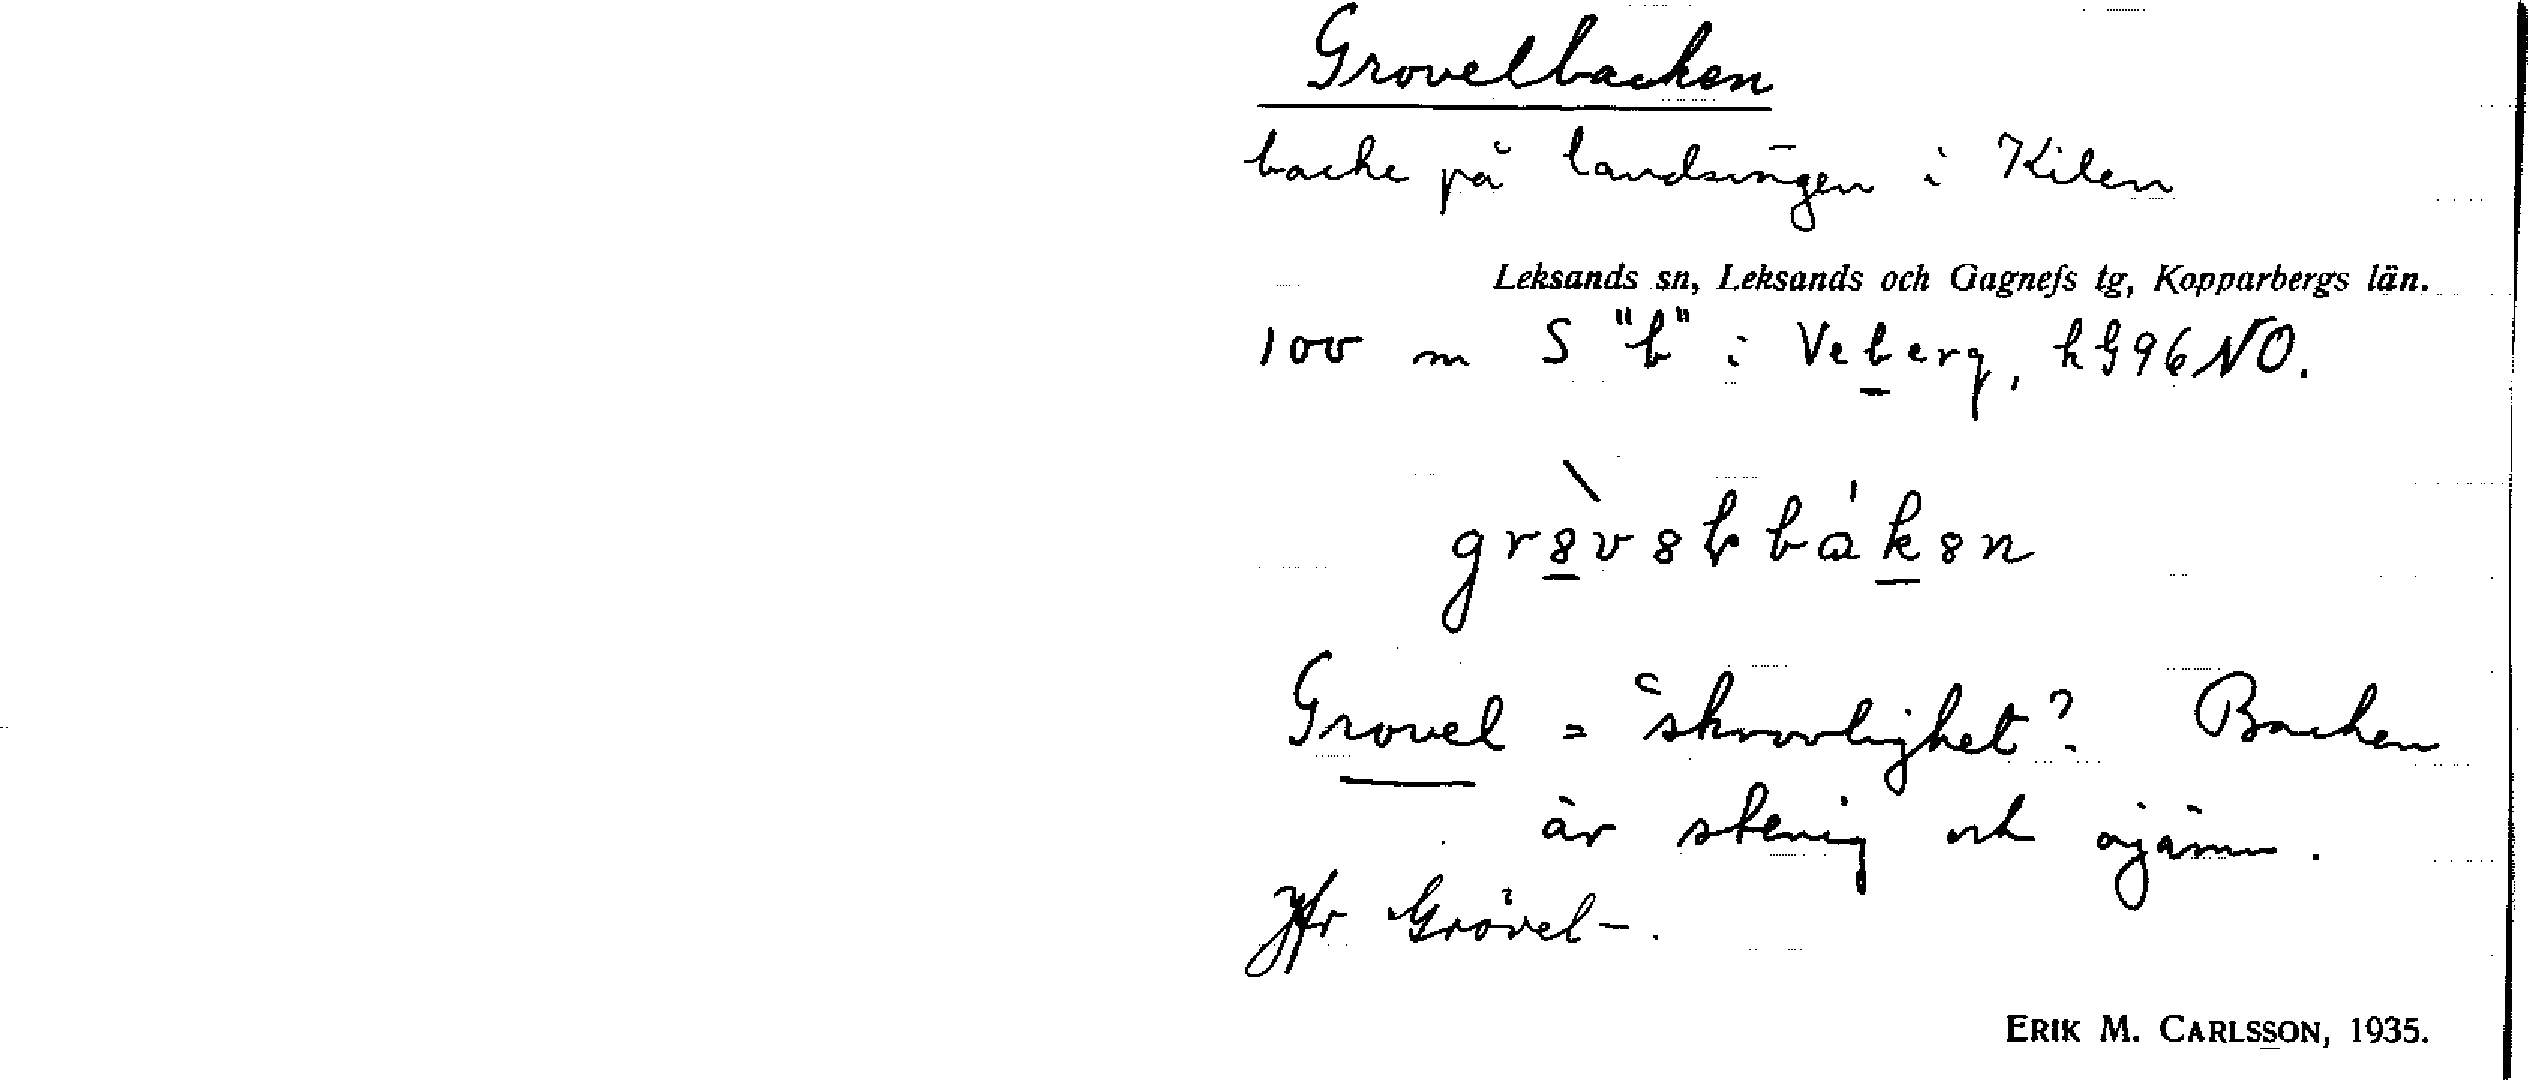 Grovelbacken
backe på landsvägen i Kilen
Leksands sn, Leksands och Gagnefs tg, Kopparbergs län.
100 m S "b" i Veberg, hg 96 NO.
Grovel = "skrovlighet"? Backen
är stenig och ojämn.
Jfr Grövel-.
ERIK M. CARLSSON, 1935.